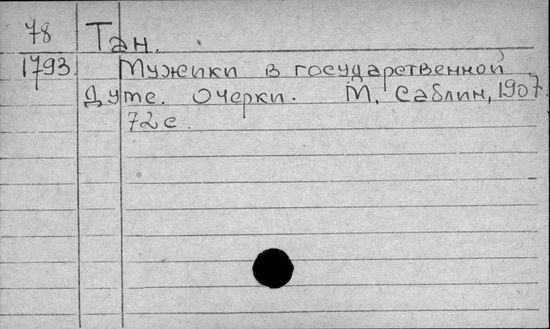 78 Тан.
1793. Мужики в государственной
Думе. Очерки. М, Саблин, 1907.
72 с.